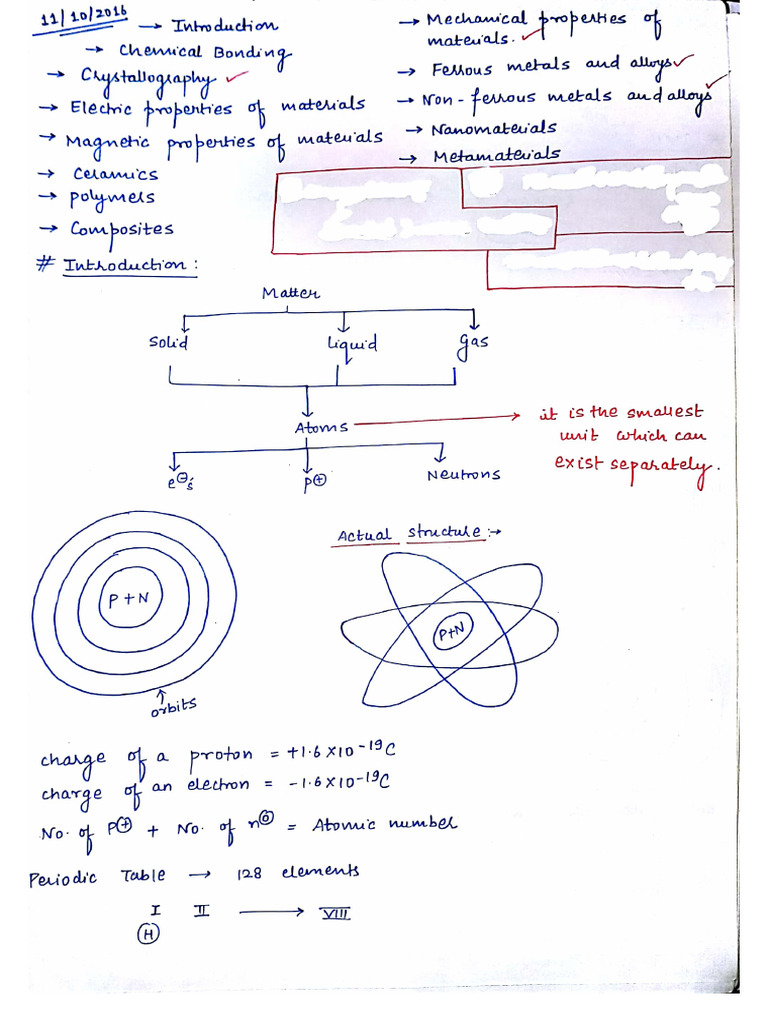 11/10/2016
→ Introduction
→ Chemical Bonding
→ Crystallography ✓
→ Electric properties of materials
→ Magnetic properties of materials
→ Ceramics
→ Polymers
→ Composites
→ Mechanical properties of
materials. ✓
→ Ferrous metals and alloys ✓
→ Non-ferrous metals and alloys ✓
→ Nanomaterials
→ Metamaterials
# Introduction:
Matter
Solid Liquid Gas
Atoms → it is the smallest
unit which can
exist separately.
e⊖'s P⊕ Neutrons
P+N
orbits
Actual structure:→
P+N
charge of a proton = +1.6×10⁻¹⁹C
charge of an electron = -1.6×10⁻¹⁹C
No. of P⊕ + No. of n⓪ = Atomic number
Periodic Table → 128 elements
I II → VIII
H